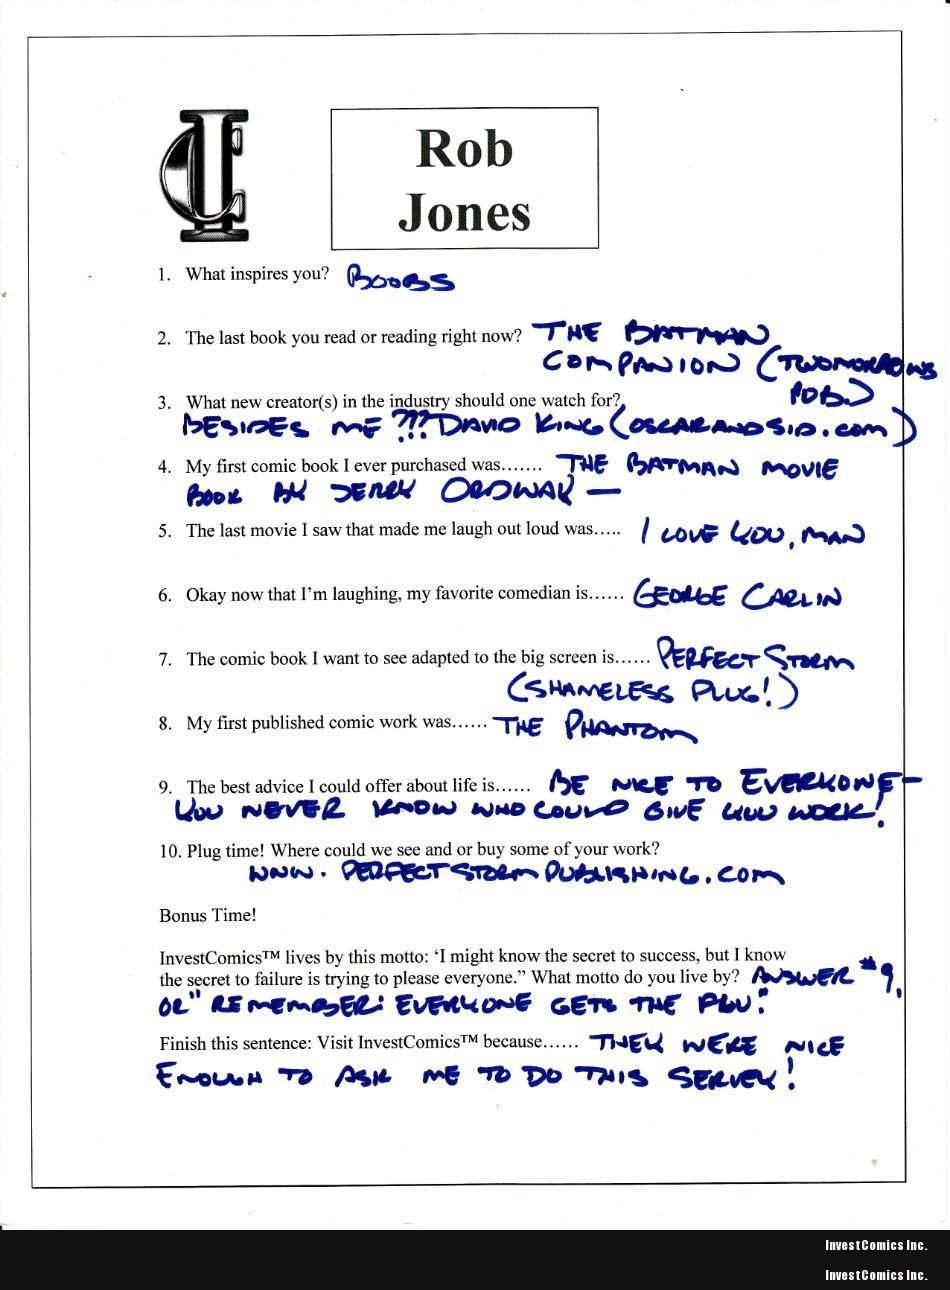 Rob
Jones
1. What inspires you? BOOBS
2. The last book you read or reading right now? THE BATMAN
COMPANION (TWOMORROWS
PUB.)
3. What new creator(s) in the industry should one watch for?
BESIDES ME ??? DAVID KING (OSCARANDSID.COM)
4. My first comic book I ever purchased was....... THE BATMAN MOVIE
BOOK BY JERRY ORDWAY —
5. The last movie I saw that made me laugh out loud was..... I LOVE YOU, MAN
6. Okay now that I'm laughing, my favorite comedian is...... GEORGE CARLIN
7. The comic book I want to see adapted to the big screen is...... PERFECT STORM
(SHAMELESS PLUG!)
8. My first published comic work was...... THE PHANTOM
9. The best advice I could offer about life is...... BE NICE TO EVERYONE—
YOU NEVER KNOW WHO COULD GIVE YOU WORK!
10. Plug time! Where could we see and or buy some of your work?
WWW.PERFECTSTORMPUBLISHING.COM
Bonus Time!
InvestComics™ lives by this motto: 'I might know the secret to success, but I know
the secret to failure is trying to please everyone." What motto do you live by? ANSWER #9,
OR "REMEMBER: EVERYONE GETS THE FLU."
Finish this sentence: Visit InvestComics™ because...... THEY WERE NICE
ENOUGH TO ASK ME TO DO THIS SURVEY!
InvestComics Inc.
InvestComics Inc.